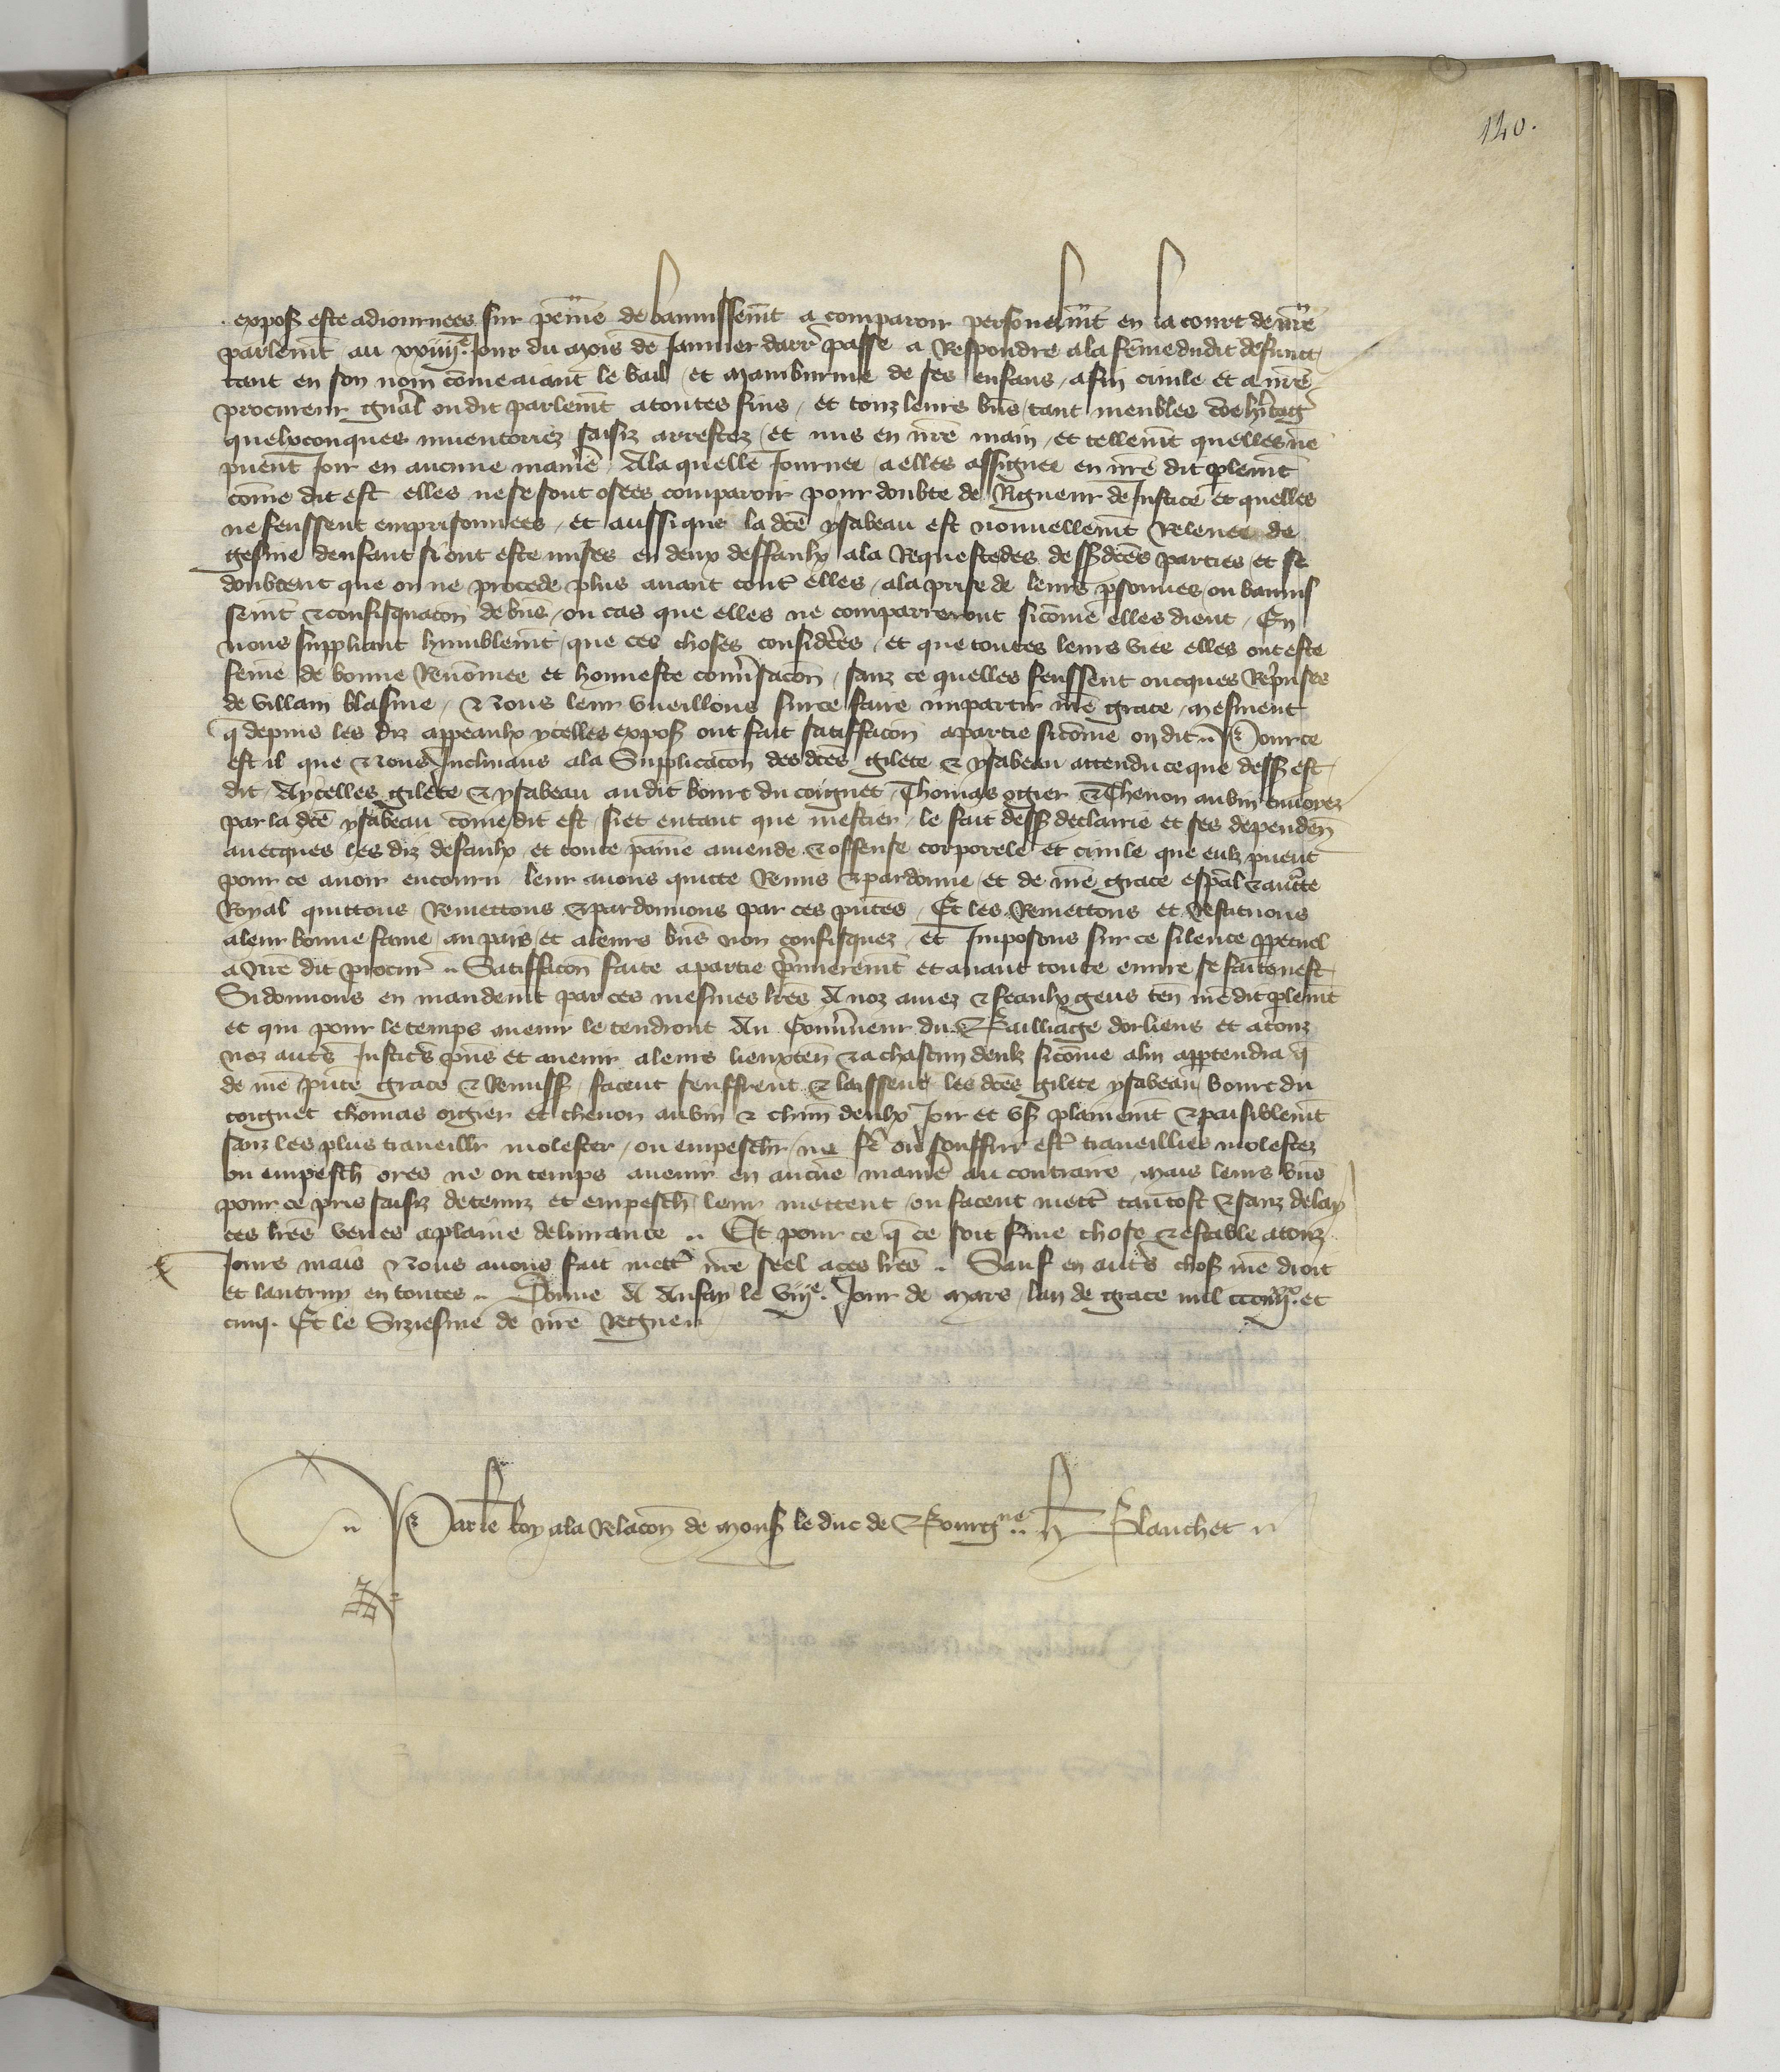 140.
expos este adiournees sur peine de bannissemt a comparoir personelmt en la court de nre
parlemt au xxiiije Jour du mois de Januier darr passe a Respondre ala feme dudit defunct
tant en son nom come aiant le bail et mamburnie de ses enfans, afin ciuile et a nre
procureur gnal oudit parlemt atoutes fins, et touz leurs bns tant meubles coe hitag
quelxconques inuentoriez saisiz arrestez et mis en nre main, et tellemt quelles ne
puent Joir en aucune manie, Ala quelle Journee a elles assignee en nre dit plemt
come dit est elles ne se sont osees comparoir pour doubte de Rigueur de Justice et quelles
ne feussent emprisonnees, et aussi que la dce ysabeau est nouuellemt Releuee de
gesine denfant si ont este mises en deux deffaulx ala Requeste des dessdces parties et se
doubtent que on ne procede plus auant contr elles, ala prise de leurs psonnes, ou bannis
semt & confisquacon de bns, ou cas que elles ne comparreront sicome elles dient, En
nous suppliant humblemt, que ces choses considees, et que toutes leurs vies elles ont este
feme de bonne Renomee et honneste conusacon, sanz ce quelles feussent oncques Reprises
de villain blasme, Nous leur vueillons sur ce faire impartir nre grace, mesment
q depuis les diz appeaulx ycelles expos ont fait satiffacon apartie sicome on dit, Pource
est il que Nous Inclinans ala Supplicacon des dces gilete & ysabeau attendu ce que dess est
dit, Aycelles gilete & ysabeau audit bourt du coignet, Thomas ogier & Thenon auvin enuoiez
par la dce ysabeau come dit est, si et entant que mestier, le fait dess declairie et ses dependen
auecques les diz defaulx et toute paine amende & offense corporele et ciuile que eulx puent
pour ce auoir encouru leur auons quitte Remis & pardonne et de nre grace espal & aucte
Royal quittons Remettons & pardonnons par ces pntes, Et les Remettons et Restituons
aleur bonne fame, au pais et aleurs bns non confisquez, et Imposons sur ce silence ppetuel
a Nre dit procur, Satiffacon faite apartie pmieremt et auant toute euure se faite nest,
Si donnons en mandemt par ces mesmes lres A noz amez & feaulx gens ten nre dit plemt
et qui pour le temps auenir le tendront Au Gouuneur du Bailliage dorliens et atouz
noz autrs Justicrs pns et auenir aleurs lieuxten & a chascun deulx sicome alui apptendra q
de nre pnte grace & Remiss, facent seuffrent & laissent les dces gilete ysabeau, bourt du
coignet thomas ogier et thenon auvin & chun deulx Joir et vs plainemt & paisiblemt
sanz les plus traueillr molester, ou empeschr, ne fe ou souffrir estr traueillies molestez
ou empesch ores ne ou temps auenir en aucue manie au contraire, mais leurs bns
pour ce pris saisiz detenuz et empesch, leur mettent ou facent mettr tantost & sanz delay
ces lres veues aplaine deliurance, Et pour ce q ce soit ferme chose & estable atouz
Jours mais Nous auons fait mettr nre seel aces lres, Sauf en autrs chos nre droit
et lautruy en toutes, Donne A Ausay le viije Jour de mars lan de grace mil ccciiijxx et
cinq. Et le Siziesme de nre Regne
Par le Roy ala Relacon de mons le duc de Bourgne H Blanchet